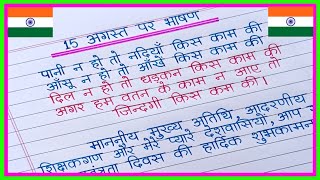 15 अगस्त पर भाषण
पानी न हो तो नदियाँ किस काम की
आँसू न हो तो आँखें किस काम की
दिल न हो तो धड़कन किस काम की
अगर हम वतन के काम न आए तो
ज़िन्दगी किस काम की।
माननीय मुख्य अतिथि, आदरणीय
शिक्षकगण और मेरे प्यारे देशवासियों, आप
स्वतंत्रता दिवस की हार्दिक शुभकामना